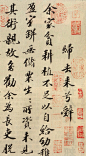 歸去來兮辭
余家貧耕植不足以自給幼稚
盈室缾無儲粟生生所資未見
其術親故多勸余為長吏脫